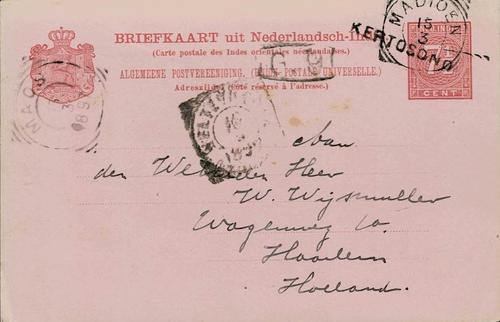 BRIEFKAART uit Nederlandsch-In
(Carte postale des Indes orientales néerlandaises.)
ALGEMEENE POSTVEREENIGING. (UNION POSTALE UNIVERSELLE.)
Adreszijde. (Côté réservé à l'adresse.)
CENT
MADIOEN
15
3
KERTOSONO
G 9
WELTEVREDEN
Aan
den Weledelen Heer
W. Wijsmuller
Wagenweg 10.
Haarlem
Holland.